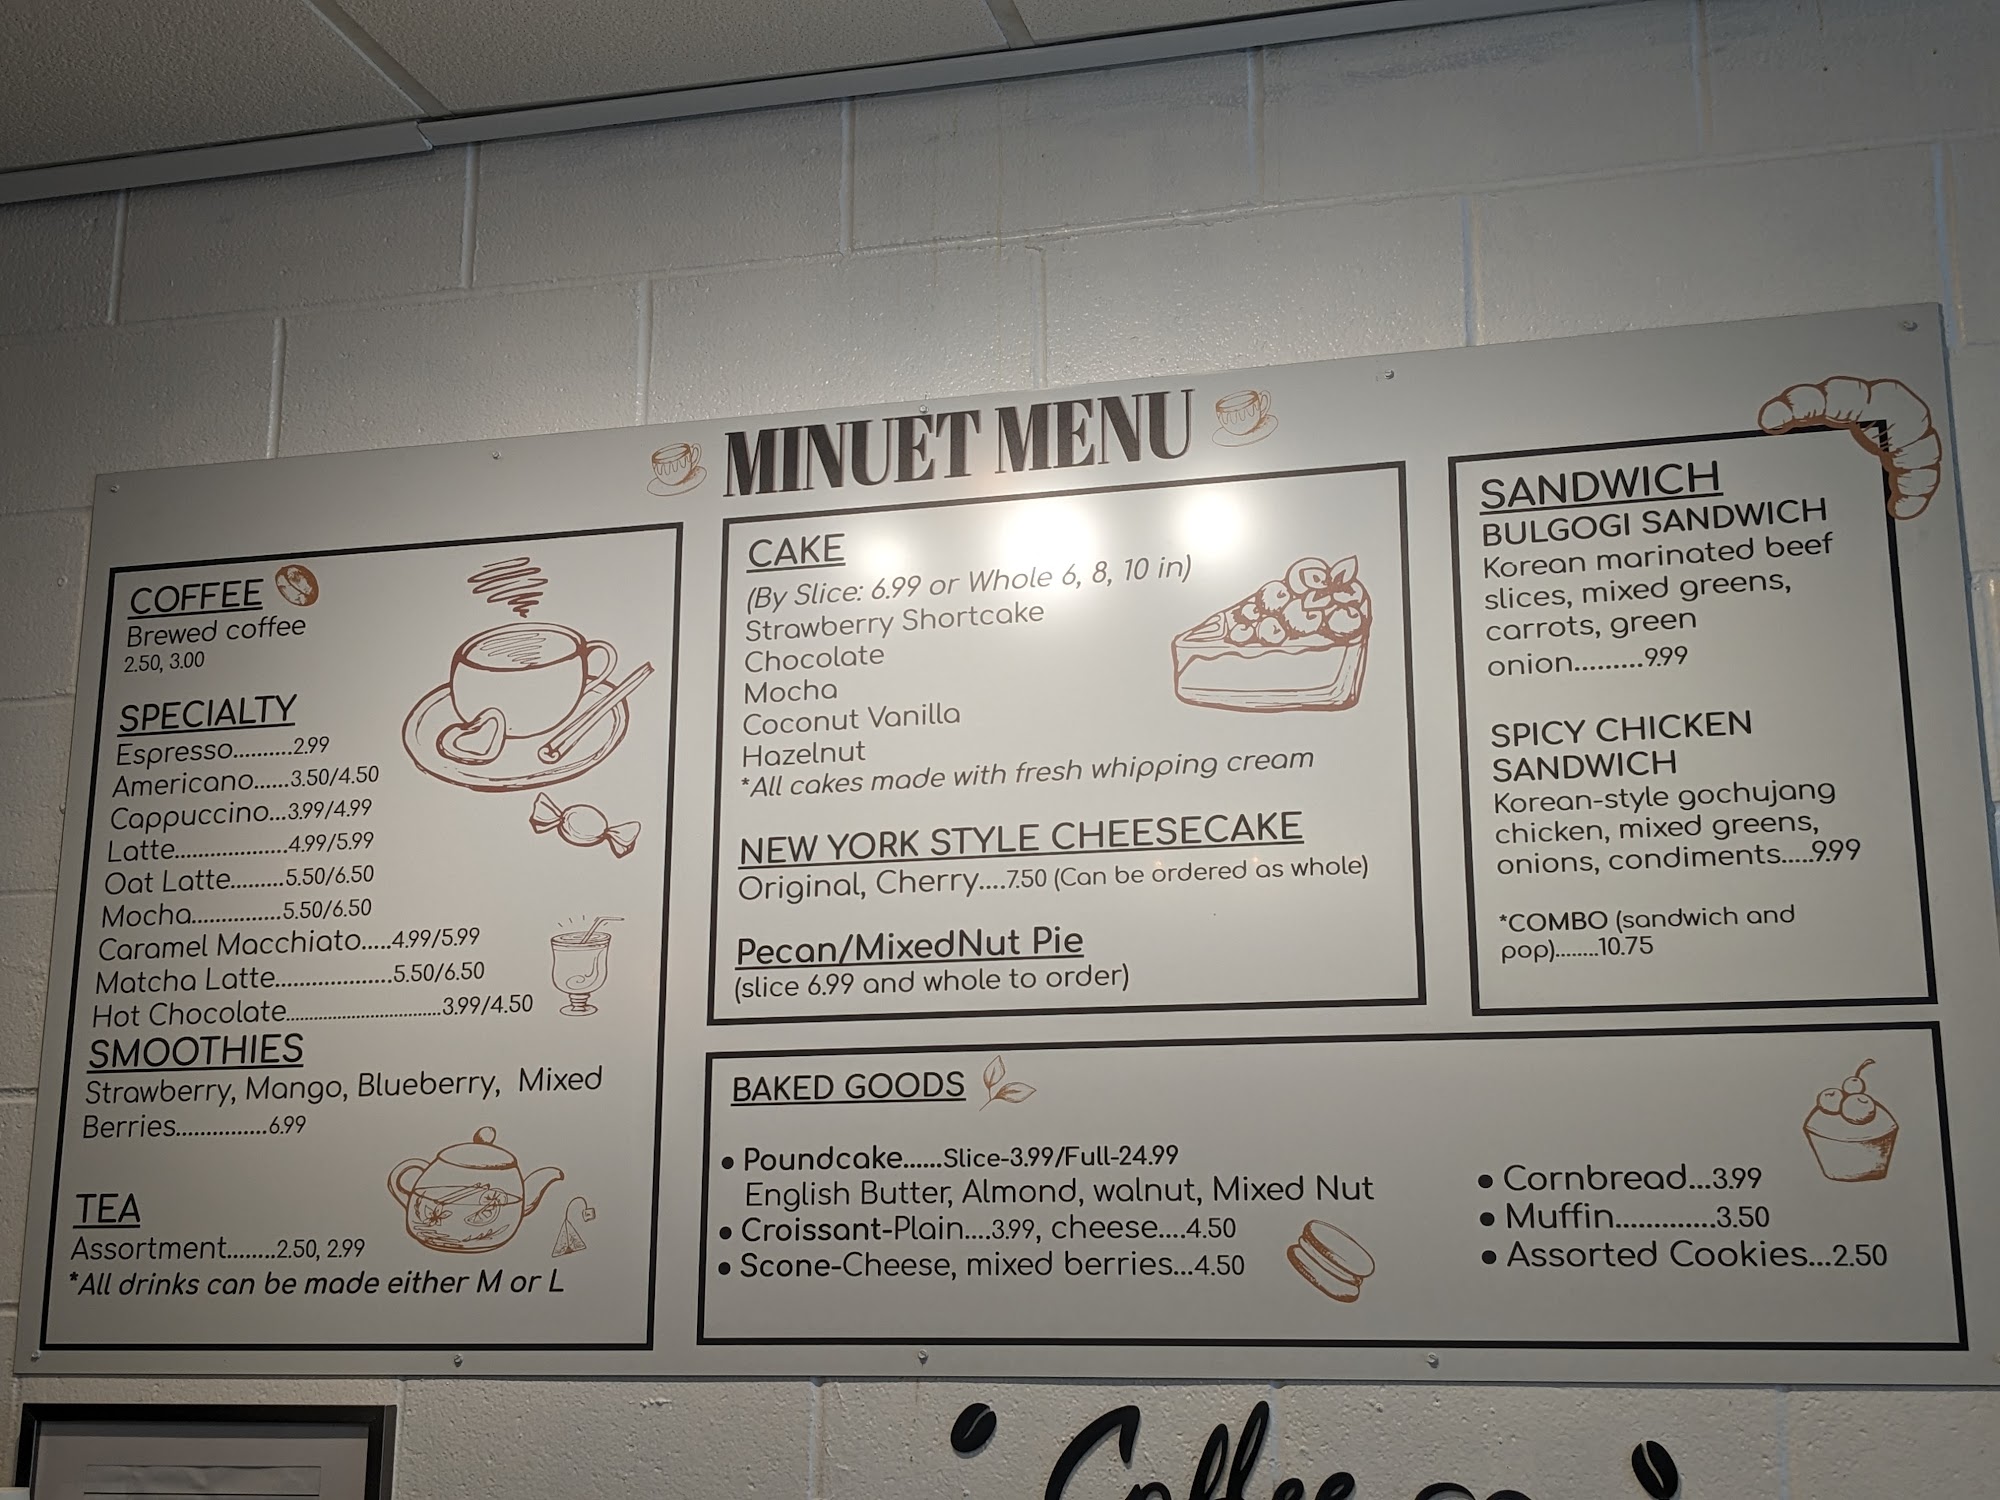 MINUET MENU
COFFEE
Brewed coffee
2.50, 3.00
SPECIALTY
Espresso..........2.99
Americano......3.50/4.50
Cappuccino...3.99/4.99
Latte...................4.99/5.99
Oat Latte.........5.50/6.50
Mocha...............5.50/6.50
Caramel Macchiato.....4.99/5.99
Matcha Latte....................5.50/6.50
Hot Chocolate...................................3.99/4.50
SMOOTHIES
Strawberry, Mango, Blueberry, Mixed
Berries...............6.99
TEA
Assortment........2.50, 2.99
*All drinks can be made either M or L
CAKE
(By Slice: 6.99 or Whole 6, 8, 10 in)
Strawberry Shortcake
Chocolate
Mocha
Coconut Vanilla
Hazelnut
*All cakes made with fresh whipping cream
NEW YORK STYLE CHEESECAKE
Original, Cherry....7.50 (Can be ordered as whole)
Pecan/MixedNut Pie
(slice 6.99 and whole to order)
SANDWICH
BULGOGI SANDWICH
Korean marinated beef
slices, mixed greens,
carrots, green
onion.........9.99
SPICY CHICKEN
SANDWICH
Korean-style gochujang
chicken, mixed greens,
onions, condiments.....9.99
*COMBO (sandwich and
pop)........10.75
BAKED GOODS
• Poundcake......Slice-3.99/Full-24.99
English Butter, Almond, walnut, Mixed Nut
• Croissant-Plain....3.99, cheese....4.50
• Scone-Cheese, mixed berries...4.50
• Cornbread...3.99
• Muffin.............3.50
• Assorted Cookies...2.50
Coffee